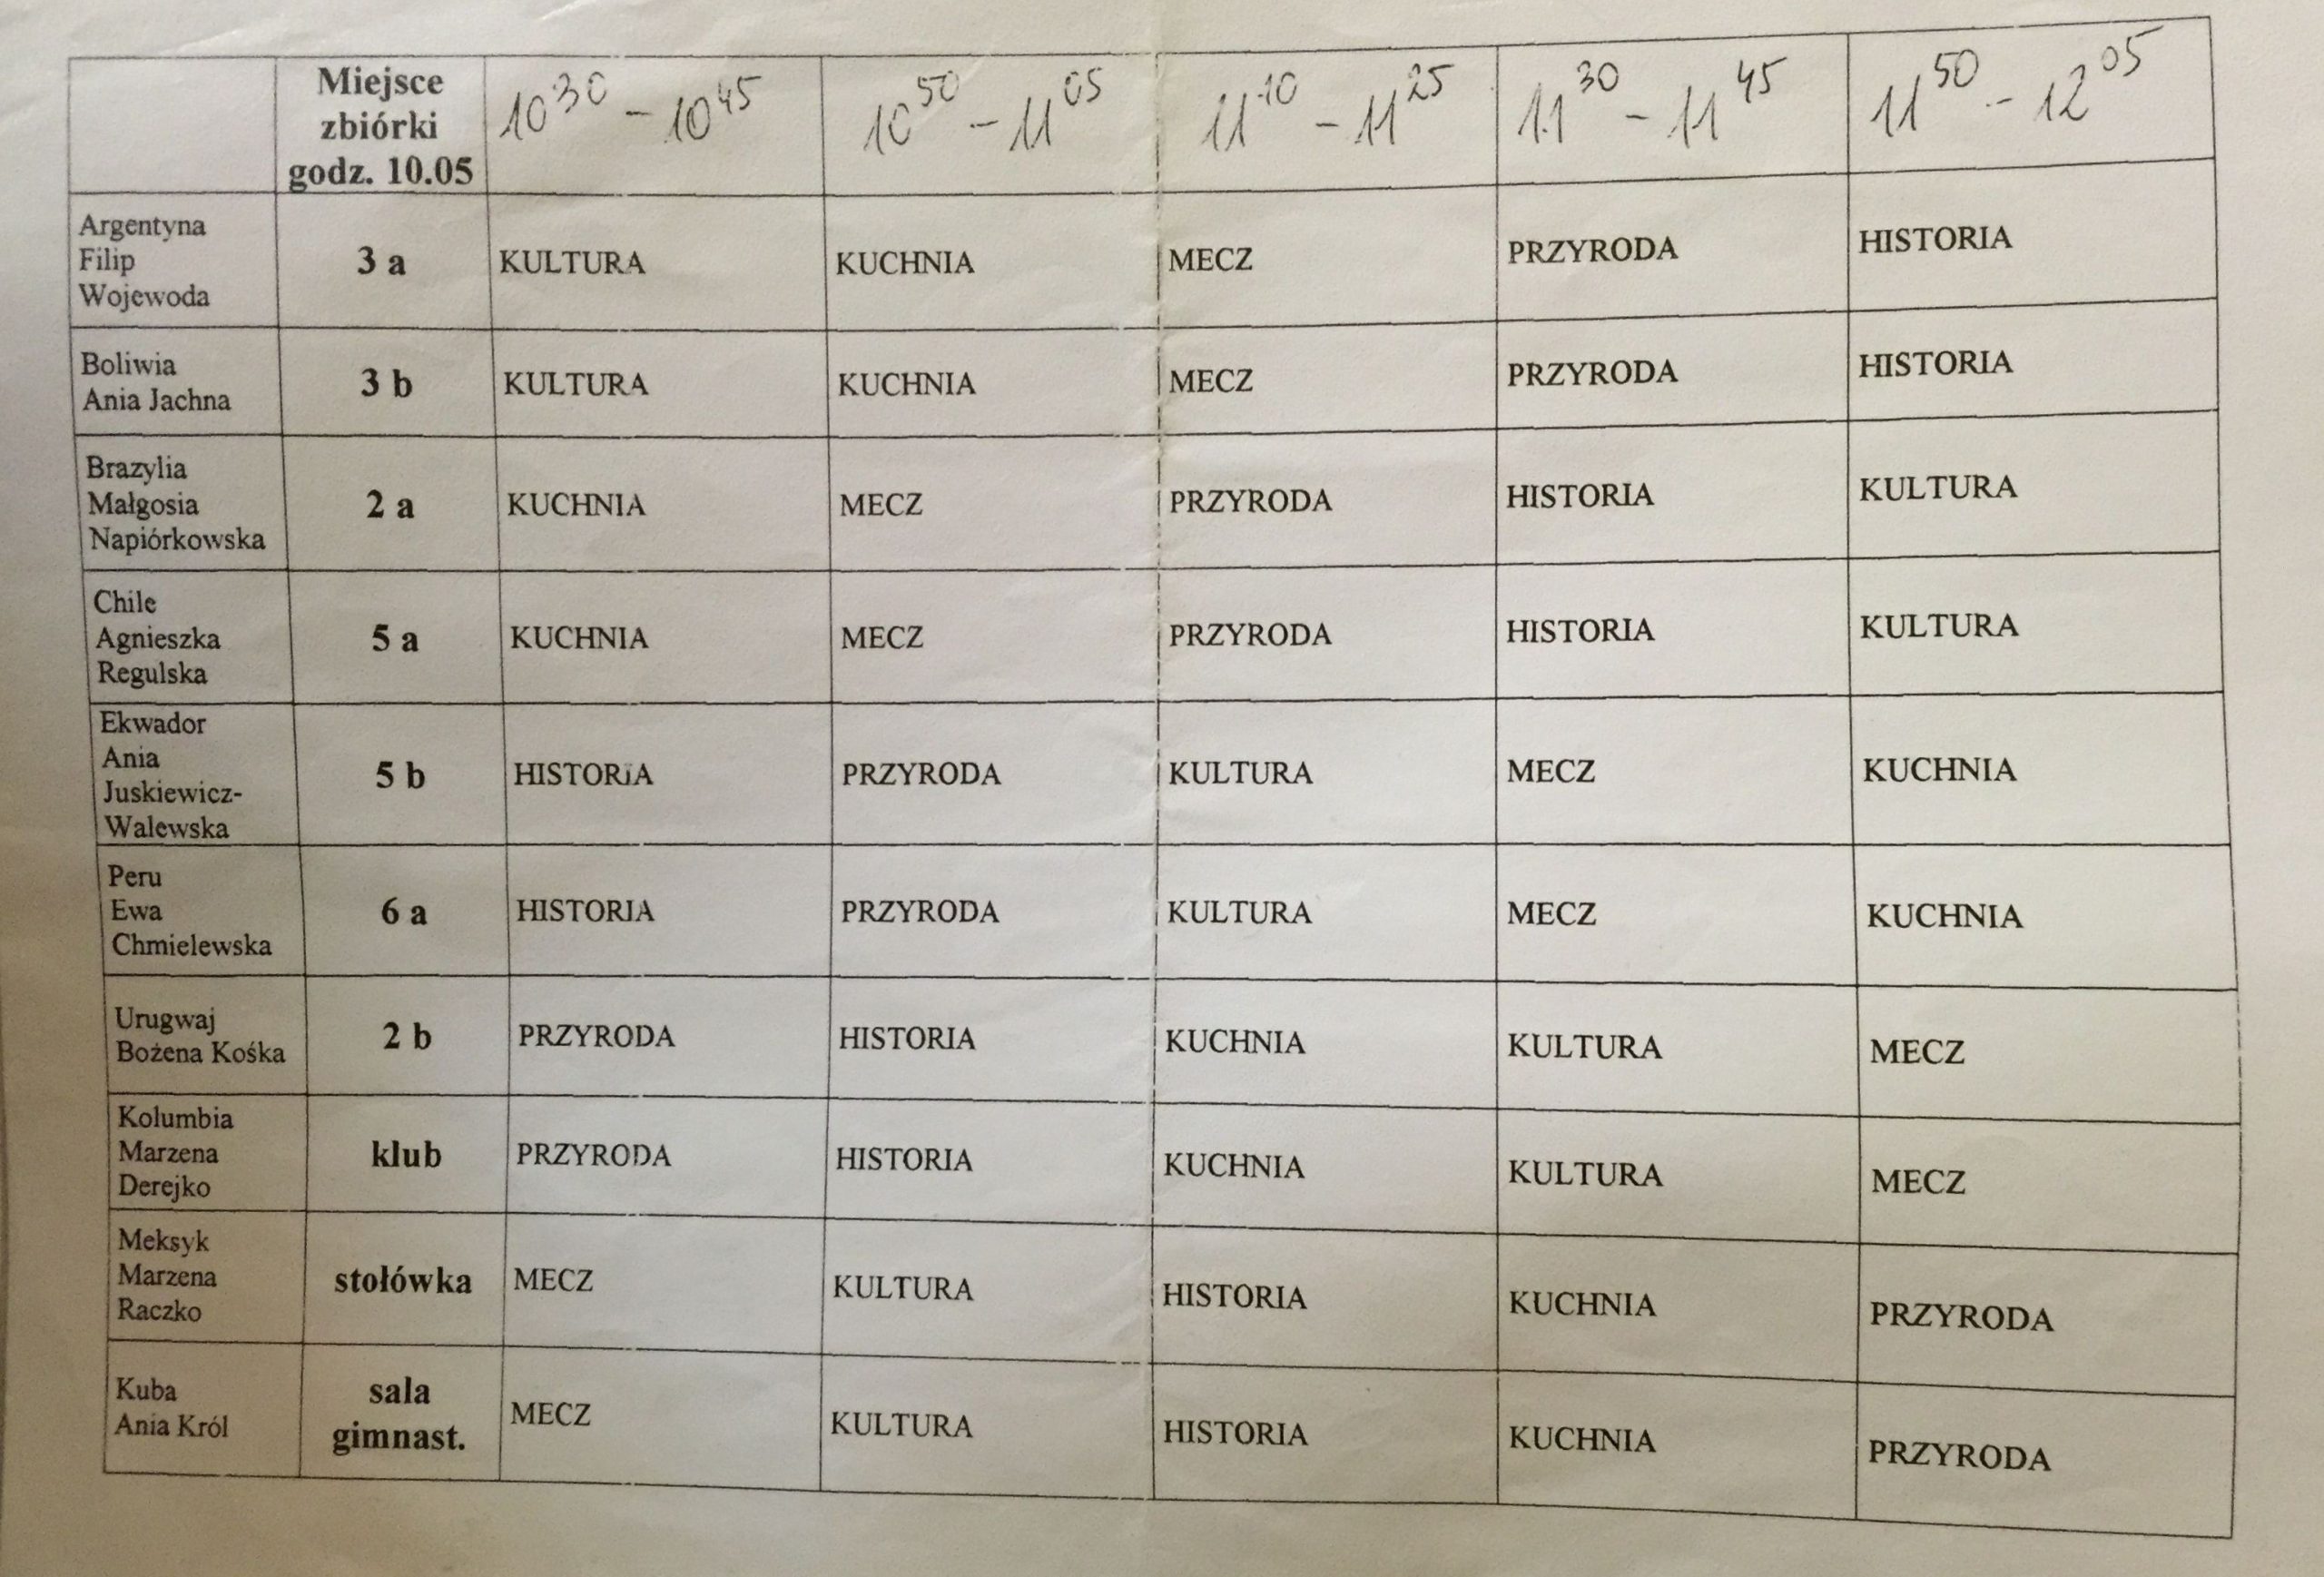 Miejsce
zbiórki
godz. 10.05
10 30 - 10 45
10 50 - 11 05
11 10 - 11 25
11 30 - 11 45
11 50 - 12 05
Argentyna
Filip
Wojewoda
3 a
KULTURA
KUCHNIA
MECZ
PRZYRODA
HISTORIA
Boliwia
Ania Jachna
3 b
KULTURA
KUCHNIA
MECZ
PRZYRODA
HISTORIA
Brazylia
Małgosia
Napiórkowska
2 a
KUCHNIA
MECZ
PRZYRODA
HISTORIA
KULTURA
Chile
Agnieszka
Regulska
5 a
KUCHNIA
MECZ
PRZYRODA
HISTORIA
KULTURA
Ekwador
Ania
Juskiewicz-
Walewska
5 b
HISTORiA
PRZYRODA
KULTURA
MECZ
KUCHNIA
Peru
Ewa
Chmielewska
6 a
HISTORIA
PRZYRODA
KULTURA
MECZ
KUCHNIA
Urugwaj
Bożena Kośka
2 b
PRZYRODA
HISTORIA
KUCHNIA
KULTURA
MECZ
Kolumbia
Marzena
Derejko
klub
PRZYRODA
HISTORIA
KUCHNIA
KULTURA
MECZ
Meksyk
Marzena
Raczko
stołówka
MECZ
KULTURA
HISTORIA
KUCHNIA
PRZYRODA
Kuba
Ania Król
sala
gimnast.
MECZ
KULTURA
HISTORIA
KUCHNIA
PRZYRODA